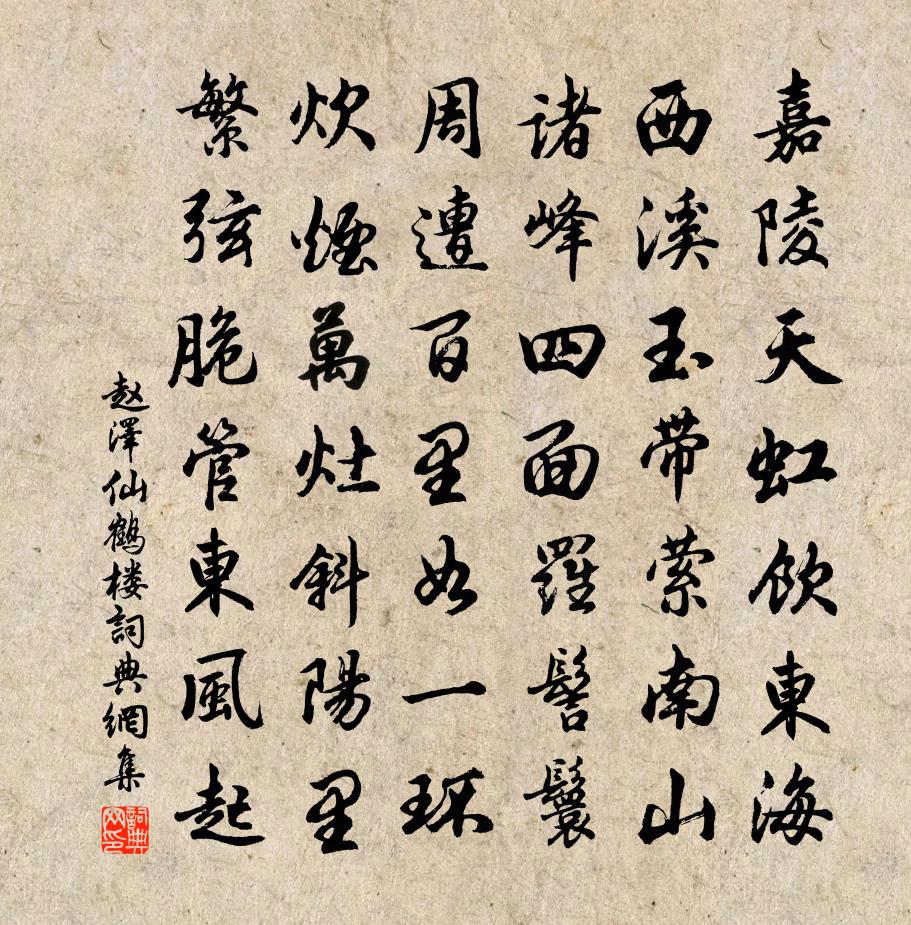 嘉陵天虹飲東海
西溪玉带縈南山
诸峰四面羅髻鬟
周遭百里如一环
炊煙萬灶斜陽里
繁弦脆管東風起
赵澤仙鶴楼詞典網集
詞典網印